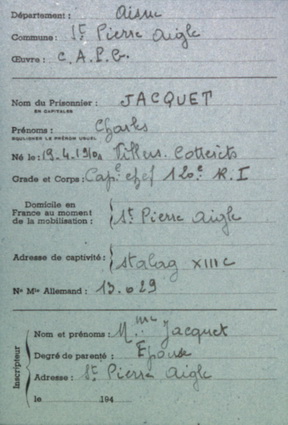 Département : Aisne
Commune : St Pierre Aigle
Œuvre : C.A.P.G.
Nom du Prisonnier : JACQUET
EN CAPITALES
Prénoms : Charles
SOULIGNER LE PRÉNOM USUEL
Né le : 19.4.1904 Villers. Cotterets
Grade et Corps : Cap. chef 120e R.I
Domicile en
France au moment
de la mobilisation : St Pierre Aigle
Adresse de captivité : Stalag XIII C
No Mle Allemand : 13.029
Inscripteur
Nom et prénoms : Mme Jacquet
Degré de parenté : Epouse
Adresse : St Pierre Aigle
le 194